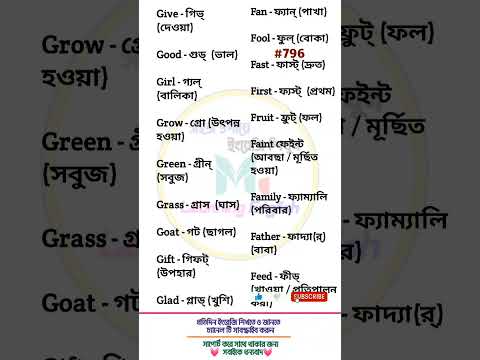 Give - গিভ্
(দেওয়া)
Good - গুড্ (ভাল)
Girl - গ্যল্
(বালিকা)
Grow - গ্রো (উৎপন্ন
হওয়া)
Green - গ্রীন্
(সবুজ)
Grass - গ্রাস (ঘাস)
Goat - গট (ছাগল)
Gift - গিফট্
(উপহার)
Glad - গ্লাড্ (খুশি)
Fan - ফ্যান্ (পাখা)
Fool - ফুল্ (বোকা)
#796
Fast - ফাস্ট্ (দ্রুত)
First - ফ্যস্ট্ (প্রথম)
Fruit - ফ্রুট্ (ফল)
Faint ফেইন্ট
(আবছা / মূর্ছিত
হওয়া)
Family - ফ্যাম্যালি
(পরিবার)
Father - ফাদ্যা(র্)
(বাবা)
Feed - ফীড্
(খাওয়া / প্রতিপালন
করা)
SUBSCRIBE
Grow -
হওয়া)
Green -
(সবুজ)
Grass -
Goat - গট
ফ্রুট্ (ফল)
ফেইন্ট
/ মূর্ছিত
- ফ্যাম্যালি
- ফাদ্যা(র্)
প্রতিদিন ইংরেজি শিখতে ও জানতে
চ্যানেল টি সাবস্ক্রাইব করুন
সাপোর্ট করে সাথে থাকার জন্য
সবাইকে ধন্যবাদ